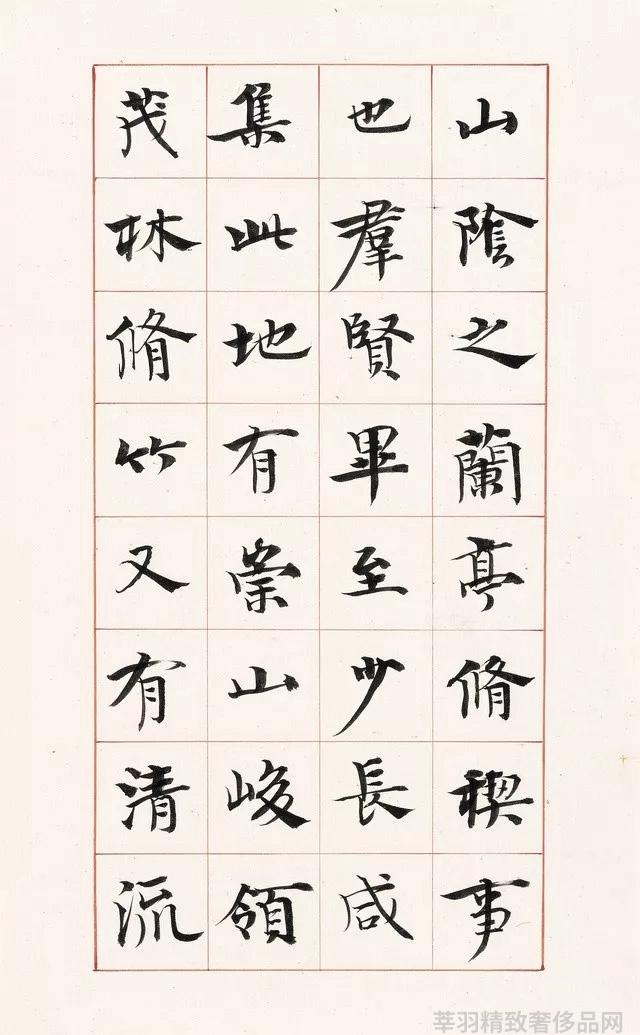 山陰之蘭亭脩稧事
也羣賢畢至少長咸
集此地有崇山峻領
茂林脩竹又有清流
莘羽精致奢侈品网